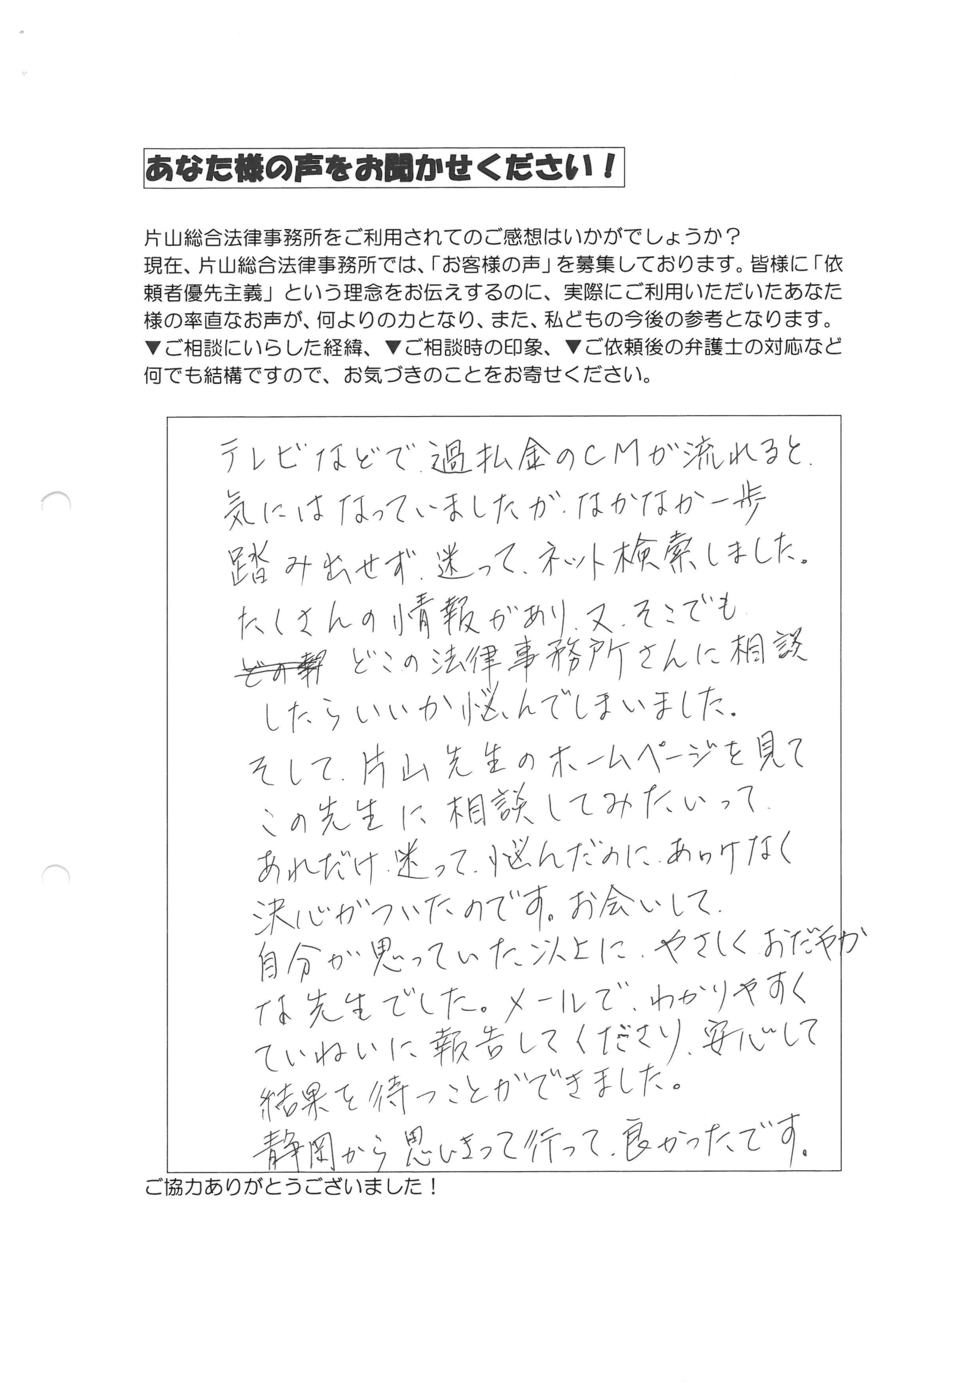 あなた様の声をお聞かせください！
片山総合法律事務所をご利用されてのご感想はいかがでしょうか？
現在、片山総合法律事務所では、「お客様の声」を募集しております。皆様に「依
頼者優先主義」という理念をお伝えするのに、実際にご利用いただいたあなた
様の率直なお声が、何よりの力となり、また、私どもの今後の参考となります。
▼ご相談にいらした経緯、▼ご相談時の印象、▼ご依頼後の弁護士の対応など
何でも結構ですので、お気づきのことをお寄せください。
テレビなどで、過払金のCMが流れると、
気にはなっていましたが、なかなか一歩
踏み出せず、迷って、ネット検索しました。
たくさんの情報があり、又、そこでも
どこの法律事務所さんに相談
したらいいか悩んでしまいました。
そして、片山先生のホームページを見て
この先生に相談してみたいって、
あれだけ、迷って、悩んだのに、あっけなく
決心がついたのです。お会いして、
自分が思っていた以上に、やさしく、おだやか
な先生でした。メールで、わかりやすく
ていねいに報告してくださり、安心して
結果を待つことができました。
静岡から思いきって行って、良かったです。
ご協力ありがとうございました！